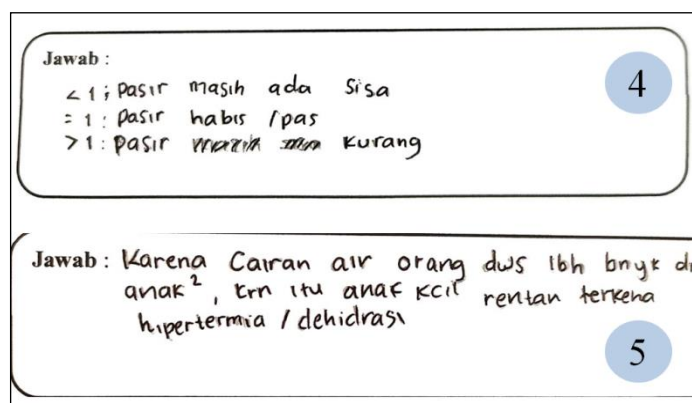 Jawab :
< 1 ; pasir masih ada sisa
= 1 : pasir habis / pas
> 1 : pasir kurang
4
Jawab : Karena Cairan air orang dws lbh bnyk
anak², krn itu anak kcil rentan terkena
hipertermia / dehidrasi
5